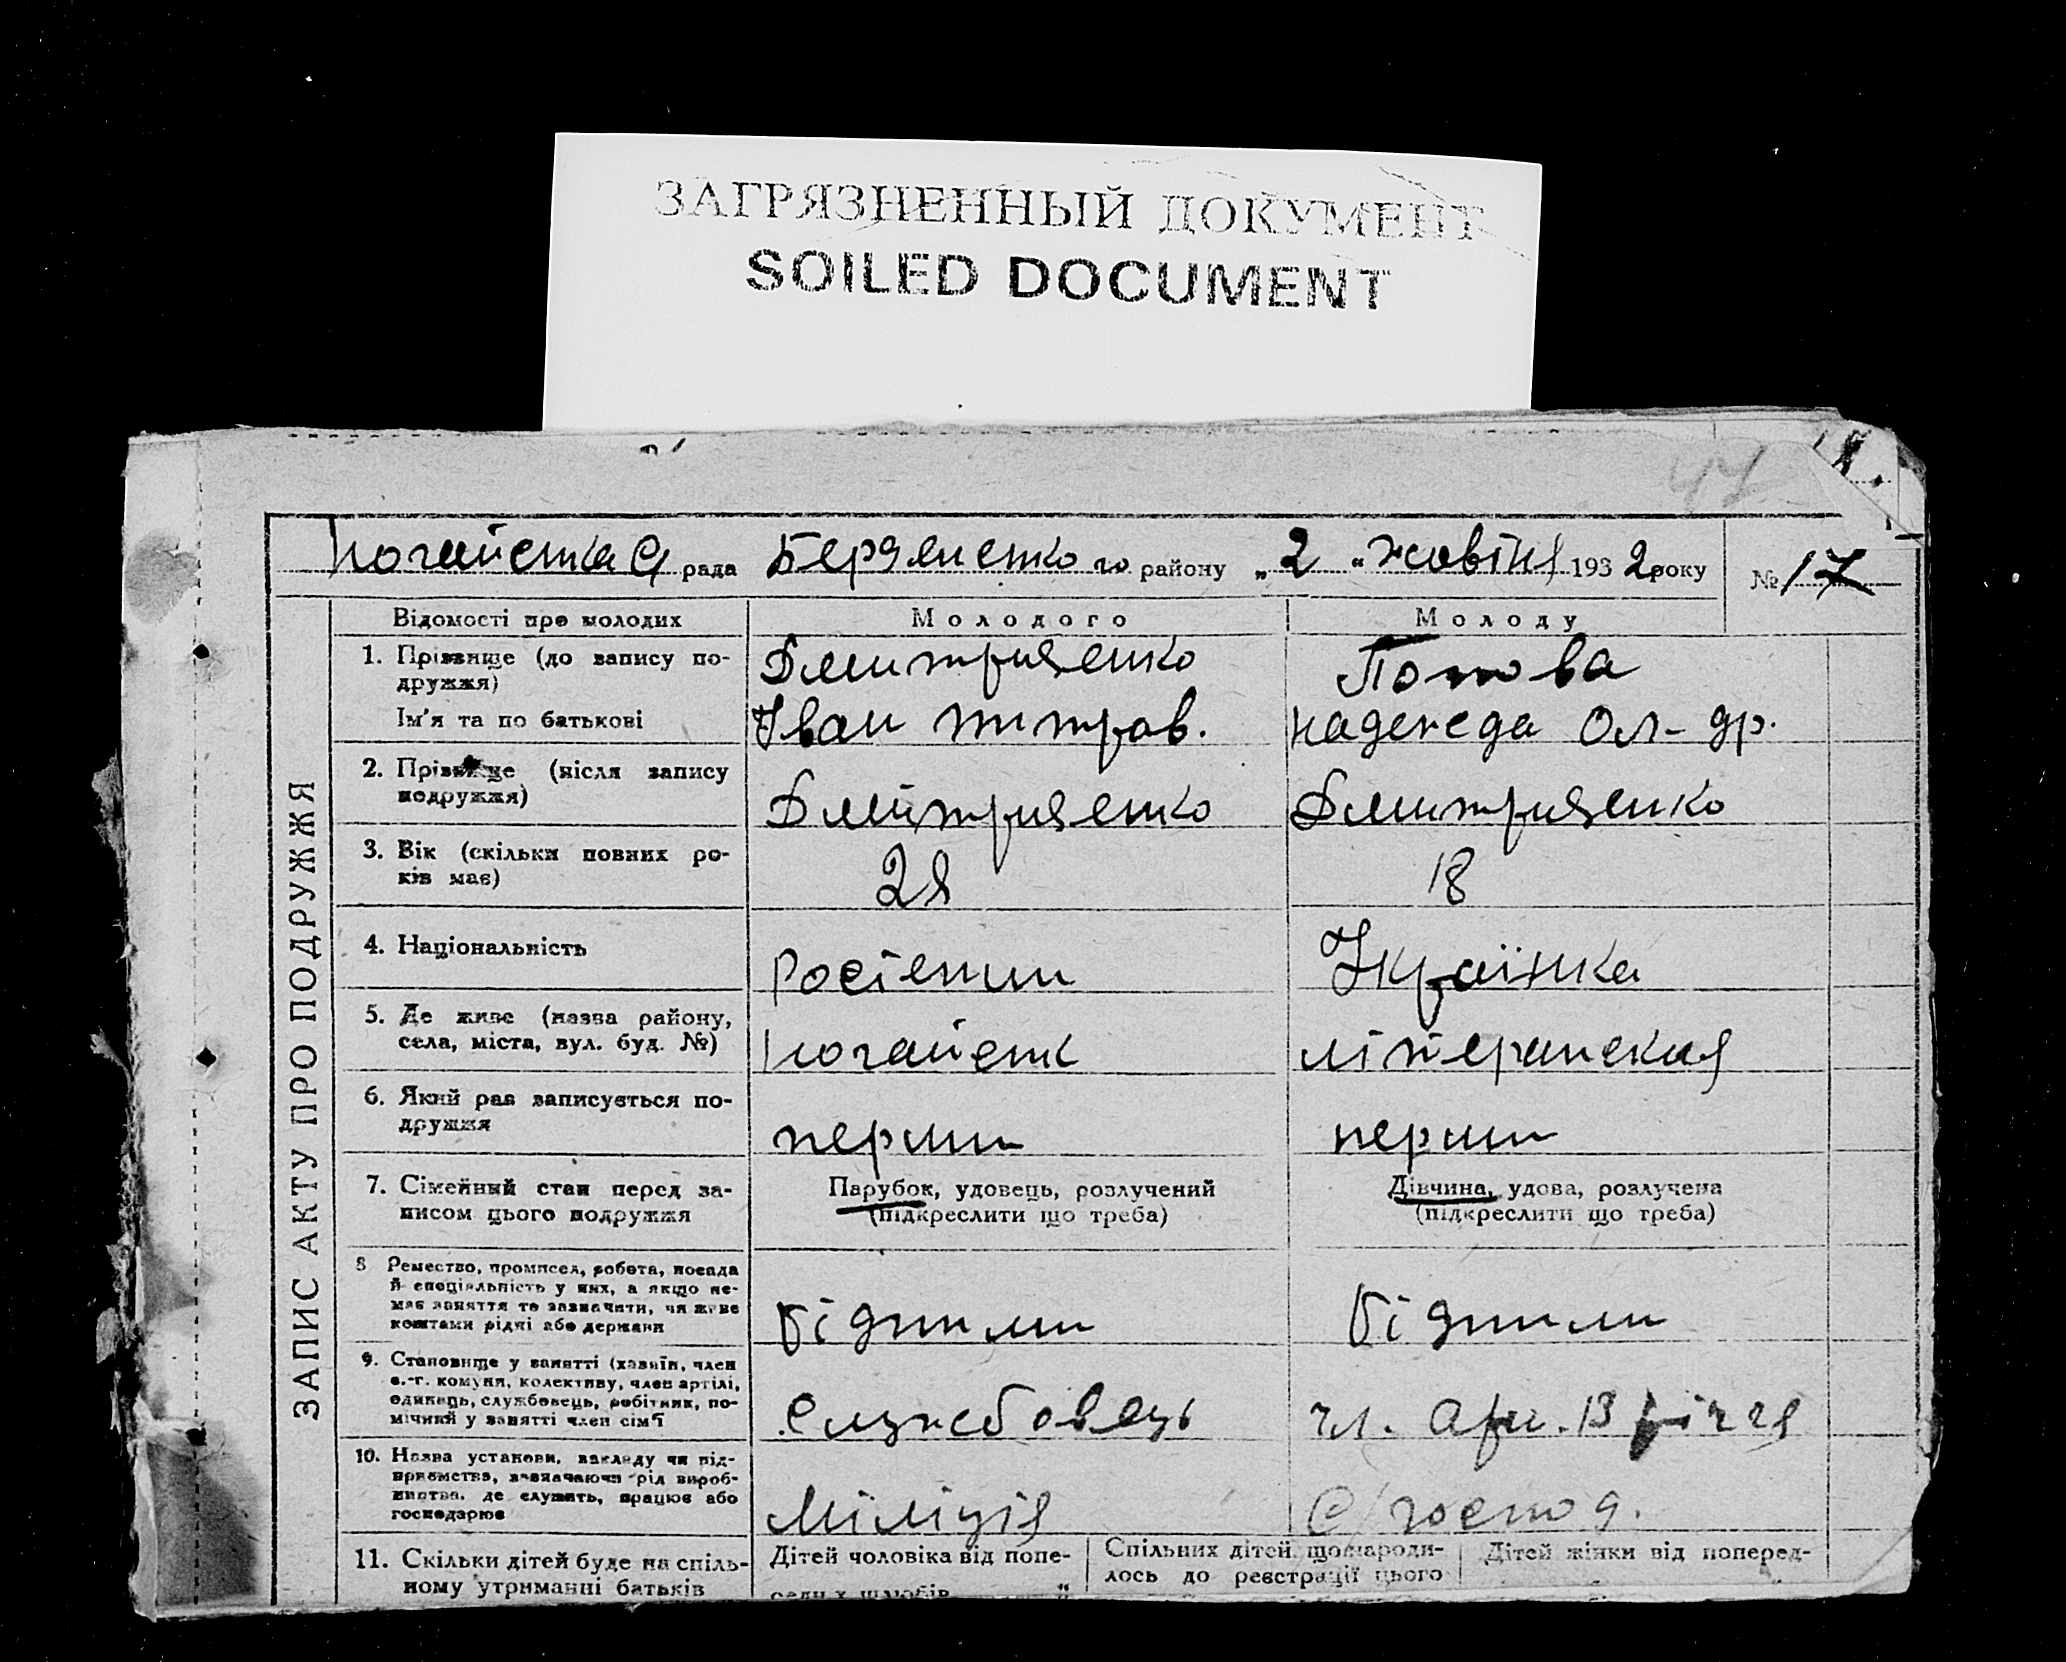 ЗАГРЯЗНЕННЫЙ ДОКУМЕНТ
SOILED DOCUMENT
47
Ногайська рада Бердянського району „2“ жовтня 1932 року № 17
ЗАПИС АКТУ ПРО ПОДРУЖЖЯ
Відомості про молодих Молодого Молоду
1. Прізвище (до запису по-
дружжя) Дмитриченко Попова
Ім'я та по батькові Іван Надежда Ол-др.
2. Прізвище (після запису
подружжя) Дмитриченко Дмитриченко
3. Вік (скільки повних ро-
ків має) 28 18
4. Національність Росіянин Українка
5. Де живе (назва району,
села, міста, вул. буд. №) Ногайськ
6. Який раз записується по-
дружжя перший перший
7. Сімейний стан перед за-
писом цього подружжя
Парубок, удовець, розлучений
(підкреслити що треба)
Дівчина, удова, розлучена
(підкреслити що треба)
8 Ремество, промисел, робота, посада
й спеціяльність у них, а якщо не-
має заняття то зазначити, чи живе
коштами рідні або держави
9. Становище у занятті (хазяїн, член
с.-г. комуни, колективу, член артілі,
одинець, службовець, робітник, по-
мічний у занятті член сім'ї Службовець чл. арт. 13 річчя
10. Назва установи, закладу чи під-
приємства, зазначаючи рід вироб-
ництва, де служить, працює або
господарює Міліція С/господ.
11. Скільки дітей буде на спіль-
ному утриманні батьків
Дітей чоловіка від попе-
редніх шлюбів „
Спільних дітей, що народи-
лось до реєстрації цього
Дітей жінки від поперед-